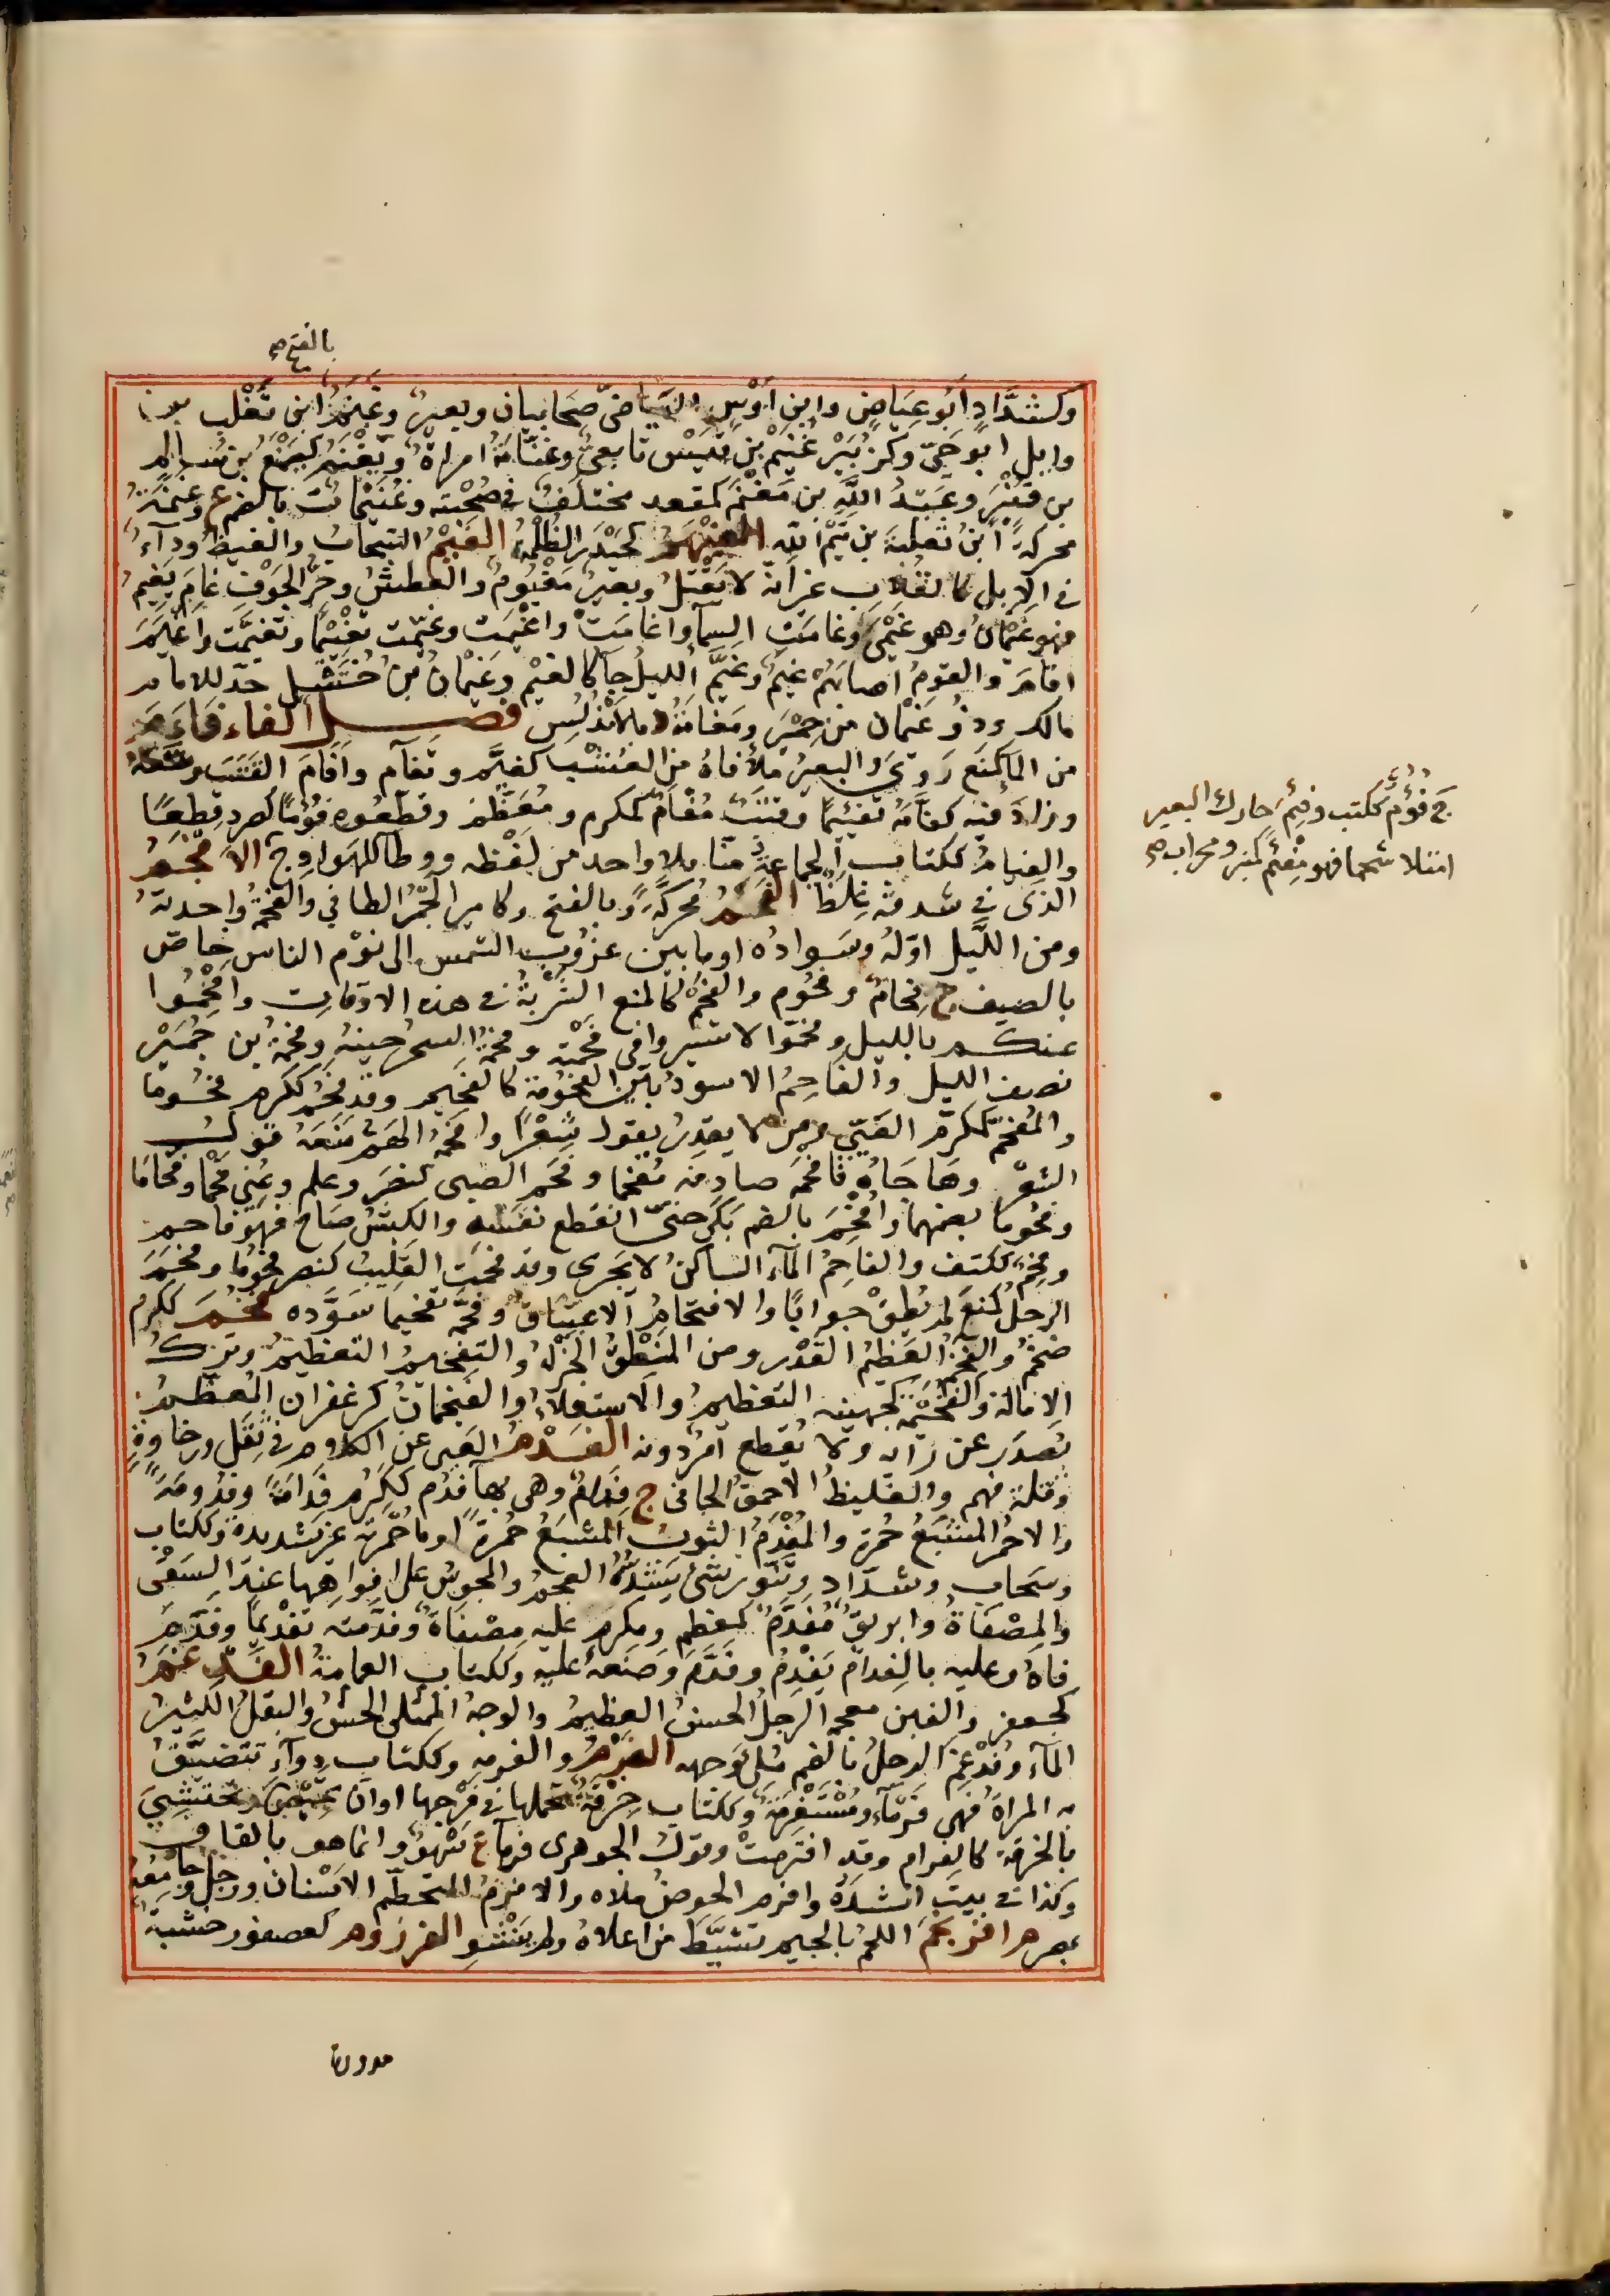 بالفتح صح
وكشدّادٍ أبو عياضٍ وابن أوسٍ البياضيّ صحابيان وبعيرٌ وغنمُ ابن تغلب بن
وايل ابو حيّ وكزبير غُنيم بن قيس تابعيّ وغنّامة امراة ويغنم كيمنع بن سالم
بن قنبر وعبد الله بن مغنم كمقعد مختلف في صحبته وغنيمات بالضم ع وغنمة
محركةً ابن ثعلبة بن تيم الله الغيهم كحيدر الظلمة الغيم السحاب والغيظ ودآء
في الابل كالقلاب غير انه لا يقتل وبعير مغيوم والعطش وحرّ الجوف غام يغيم
فهو غيمان وهى غيمى وغامت السمآ واغامت واغيمت وغيمت تغييما وتغيمت واغيم
اقام والقوم اصابهم غيم وغيّم الليل جآ كالغيم وغيمان بن خثيل جدّ للامام
مالك وذو غيمان من حمير ومغامة د بالاندلس فصل الفاء فاءم
من الما كمنع روى والبعير ملأ فاه من العشب كفئم وتفآم وافام القتب وسّعه
وزاد فيه كفأمه تفئيما وقتب مفأم كمكرم ومعظم وقطعوه فؤما كصرد قطعا
ج فؤم ككتب وفئم حارك البعير
والفيام ككتاب الجماعة منّا بلا واحد من لفظه ووطا للهوادج الافجم
امتلا شحما فهو مفئم كمنبر ومحراب صح
الذى في شدقه غلظ الفحم محركةً وبالفتح وكامير الجمر الطافي والفحمة واحدته
ومن الليل اوله وسواده او ما بين غروب الشمس الى نوم الناس خاصّ
بالصيف ج فحام وفحوم والفحم كالمنع الشربة في هذه الاوقات وافحموا
عنكم بالليل وفحموا لا تسيروا في فحمته وفحمة السحر حينه وفحمة بن جمير
نصف الليل والفاحم الاسود بيّن الفحومة كالفحيم وقد فحم ككرم فحوما
والمفحم كمكرم العيىّ ومن لا يقدر يقول شعرا وافحمه الهم منعه قول
الشعر وهاجاه فافحمه صادفه مفحما وفحم الصبى كنصر وعلم وعُنى فحما وفحاما
وفحوما بضمهما وافحم بالضم بكى حتى انقطع نفسه والكبش صاح فهو فاحم
وفحم ككتف والفاحم المآء الساكن لا يجرى وقد فحمت القليب كنصر فحوما وفحم
الرجل كمنع لم يطق جوابا والافتحام الاعتباق وفحمه تفحيما سوّده فخم ككرم
ضخم والفخم العظيم القدر ومن المنطق الجزل والتفخيم التعظيم وترك
الامالة والفخيمة كجهينه التعظيم والاستعلاء والفيخمان كزعفران المعظم
يصدر عن رأيه ولا يقطع امر دونه الفدم العيى عن الكلام في ثقل ورخاوة
وقلة فهم والغليظ الاحمق الجافى ج فدام وهى بهآ فدم ككرم فدامة وفدومة
والاحمر المشبع حمرة والمفدم الثوب المشبع حمرة او ما حمرته غير شديدة وككتاب
وسحاب وشداد وتنور شئ يشده العجم والمجوس على افواهها عند السقى
والمصفاة وابريق مفدم كمعظم ومكرم عليه مصفاة وفدّمته تفديما وفدم
فاه وعليه بالفدام يفدم وفدّم وضعه عليه وككتاب العمامة الفدغم
كجعفر والغين معجم الرجل الحسن العظيم والوجه الممتلى الحسن والبقل الكثير
المآء وفدغم الرجل بالضم مُلئ وجهه الفرم والفرمه وككتاب دوآء تتضيق
به المراة فهى فرمآء ومستفرمة وككتاب خرقة تحملها في فرجها او ان تحيض وتحتشى
بالخرقة كالفرام وقد افترمت وقول الجوهرى فرمآ ع سهو وانما هو بالقاف
وكذا في بيت انشده وافرم الحوض ملاه والافرم المتحطم الاسنان ورجل جامع
بمصر افرنجم اللحم بالجيم تشيط من اعلاه ولم ينشو الفرزوم كعصفور خشبة
مدورة